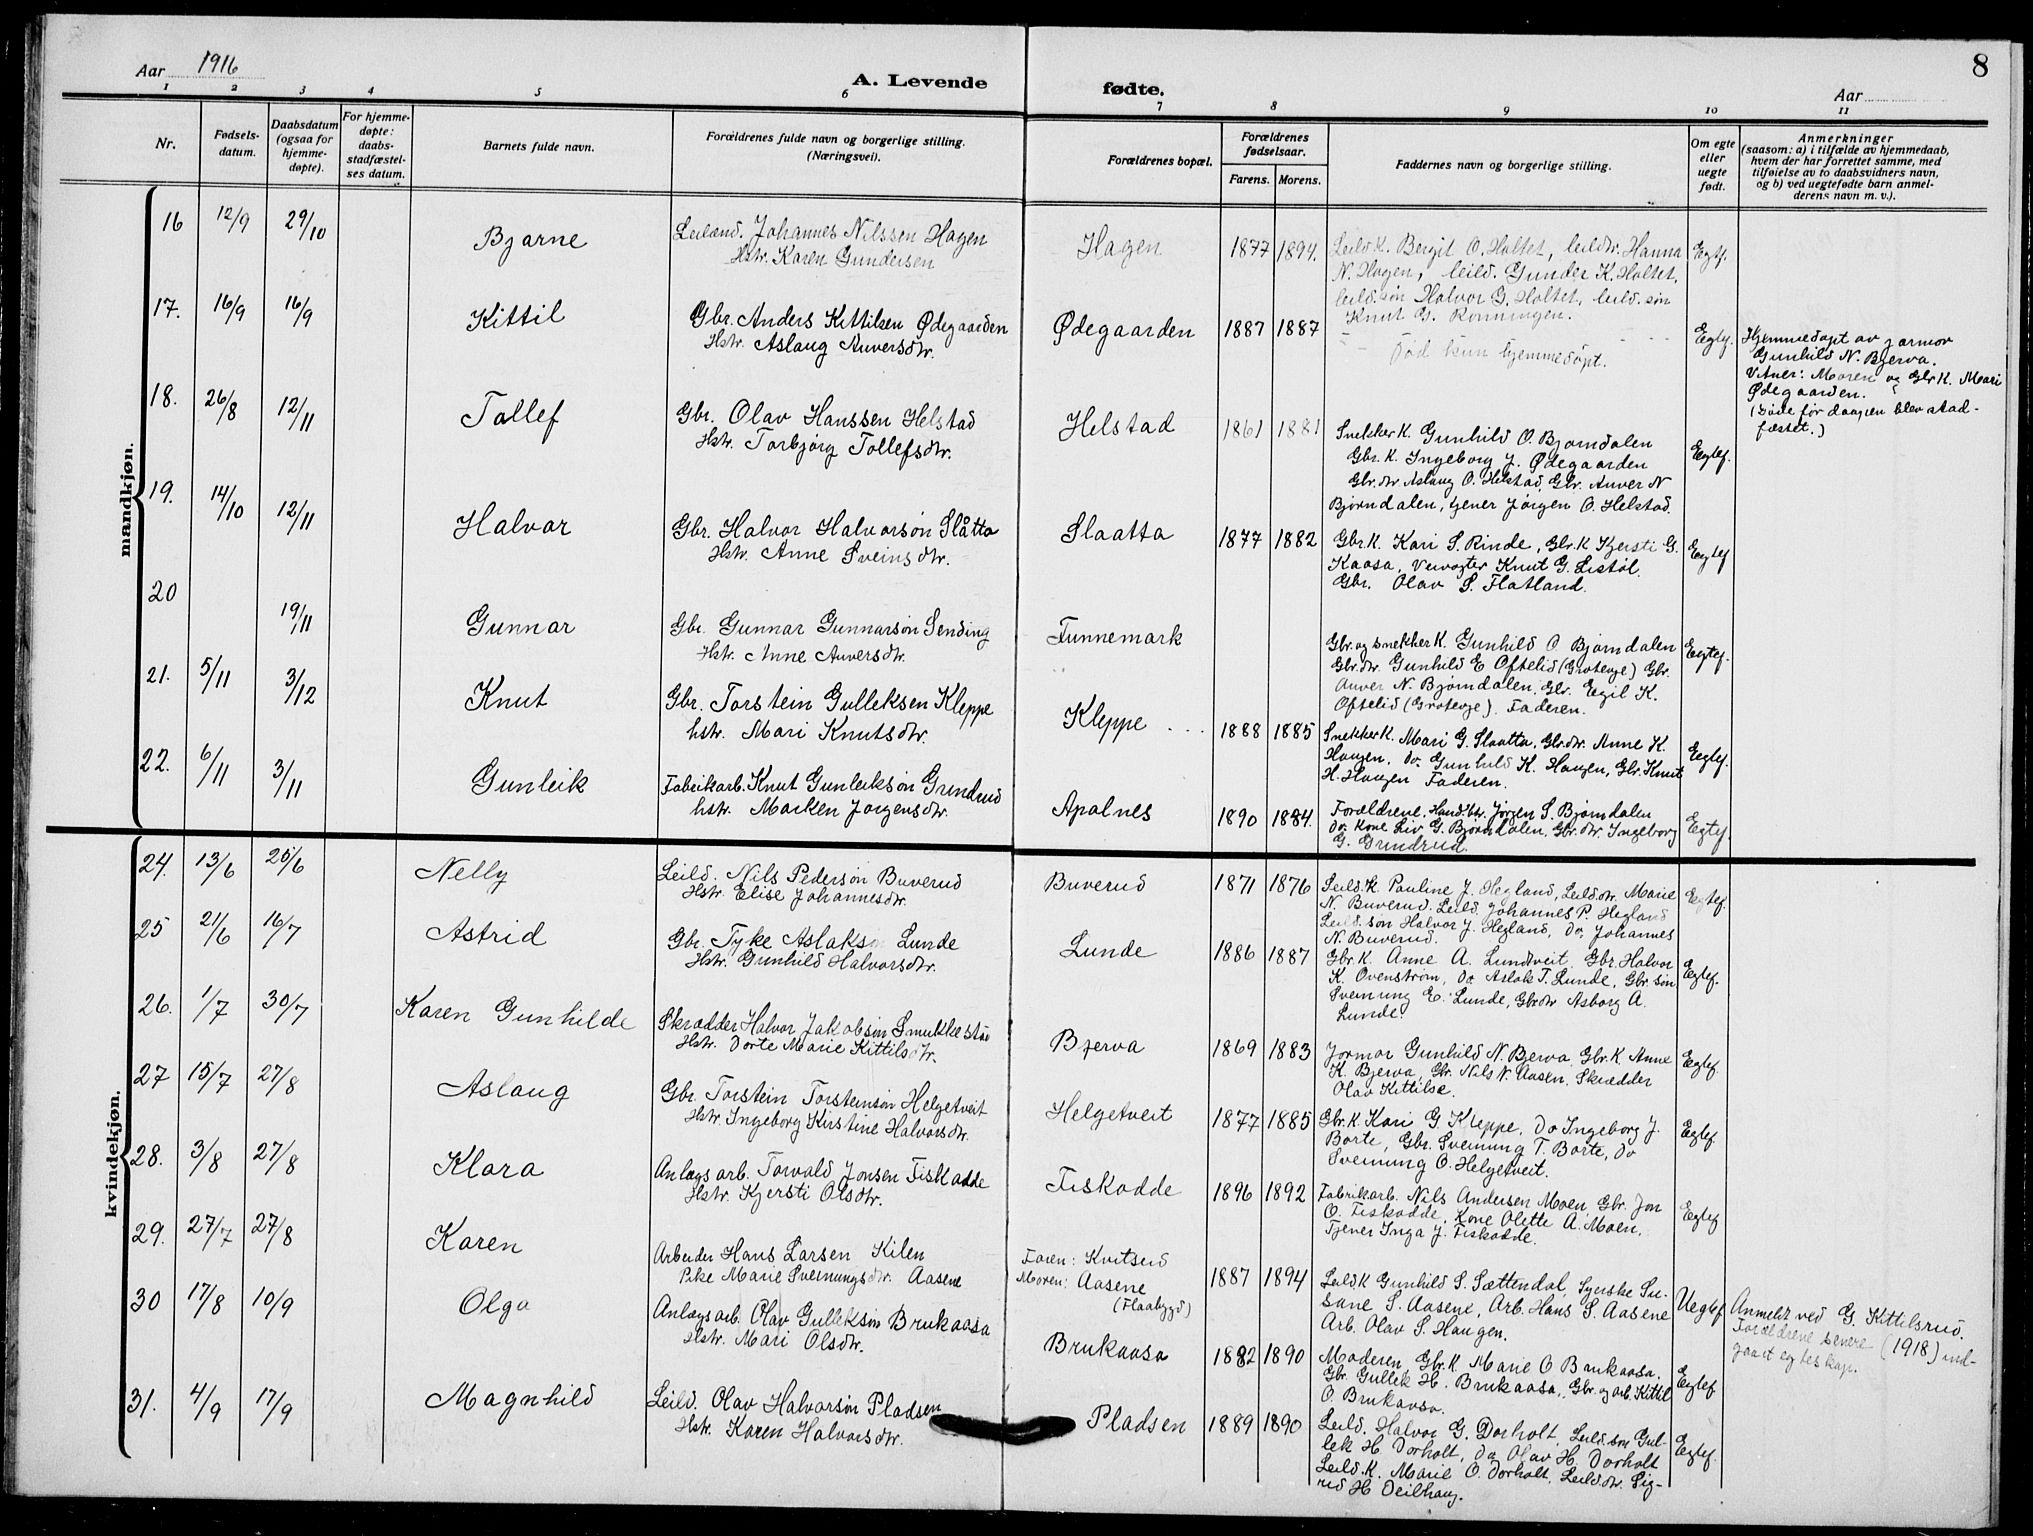 8
Aar 1916
A. Levende fødte.
Aar
1 2 3 4 5 6 7 8 9 10 11
Nr.
Fødsels-
datum.
Daabsdatum
(ogsaa for
hjemme-
døpte).
For hjemme-
døpte:
daabs-
stadfæstel-
ses datum.
Barnets fulde navn.
Forældrenes fulde navn og borgerlige stilling.
(Næringsvei).
Forældrenes bopæl.
Forældrenes
fødselsaar.
Farens. Morens.
Faddernes navn og borgerlige stilling.
Om egte
eller
uegte
født.
Anmerkninger
(saasom: a) i tilfælde av hjemmedaab,
hvem der har forrettet samme, med
tilføielse av to daabsvidners navn,
og b) ved uegtefødte barn anmel-
derens navn m. v.).
mandkjøn.
16 12/9 29/10 Bjarne
Leilænd. Johannes Nilssen Hagen
Hstr. Karen Gundersen
Hagen 1877 1894.
Leild K. Bergit O. Holtet, leildtr. Hanna
N. Hagen, leild. Gunder K. Holtet,
leild. søn Halvor G. Holtet, leild. søn
Knut G. Rønningen.
Egtf.
17. 16/9 16/9 Kittil
Gbr. Anders Kittilsen Ødegaarden
Hstr. Aslaug Auversdtr.
Ødegaarden 1887 1887
Død kun hjemmedøpt.
Egtf.
Hjemmedøpt av jormor
Gunhild N. Bjerva.
Vitner: Moren og Gbr K. Mari
Ødegaarden.
(Døde før daapen blev stad-
fæstet.)
18. 26/8 12/11 Tallef
Gbr. Olav Hanssen Helstad
Hstr. Torbjørg Tollefsdtr.
Helstad 1861 1881
Snekker K. Gunhild O. Bjørndalen
Gbr. K. Ingeborg J. Ødegaarden
Gbr. dtr Aslaug O. Helstad, Gbr. Auver N
Bjørndalen, tjener Jørgen O. Helstad.
Egtef.
19. 14/10 12/11 Halvor
Gbr. Halvor Halvorsøn Slåtta
Hstr. Anne Sveinsdtr.
Slaatta 1877 1882
Gbr K. Kari S. Rinde, Gbr. K Kjersti G.
Kaasa, Veivogter Knut G. Listøl.
Gbr. Olav S. Flatland.
Egtef
20 19/11 Gunnar
Gbr. Gunnar Gunnarsøn Sending
Hstr. Anne Auversdtr.
Funnemark
Gbr. og snekker K. Gunhild O Bjørndalen
Gbr. dtr. Gunhild E Oftelid (Groteige) Gbr.
Auver N. Bjørndalen, Gbr. Egil K.
Oftelid (Groteige). Faderen.
Egtef.
21. 5/11 3/12 Knut
Gbr. Torstein Gulleksen Kleppe
hstr. Mari Knutsdtr.
Kleppe 1888 1885
Snekker K. Mari G. Slaatta, Gbr. dtr. Anne K.
Haugen, do. Gunhild K. Haugen, Gbr. Knut
H. Haugen Faderen.
Egtef.
22. 6/11 3/11 Gunleik
Fabrikarb. Knut Gunleiksøn Grindrud
hstr. Marken Jørgensdtr.
Apalnes 1890 1884.
Forældrene, Hand.btr. Jørgen S. Bjørndalen
do. kone Liv G. Bjørndalen, Gbr. dtr. Ingeborg
G. Grindrud.
Egtef.
kvindekjøn.
24. 13/6 25/6 Nelly
Leild. Nils Pedersøn Buverud
Hstr. Elise Johannesdtr.
Buverud 1871 1876
Leild. K Pauline J. Hegland, Leild dtr. Marie
N. Buverud. Leild. Johannes P. Hegland
Leild. søn Halvor J. Hegland, do. Johannes
N. Buverud.
Egtef.
25 21/6 16/7 Astrid
Gbr. Tyke Aslaksøn Lunde
Hstr. Gunhild Halvorsdtr.
Lunde 1886 1887
Gbr. K. Anne A. Lundtveit Gbr. Halvor
K. Ovenstrøm, do. Aslak T. Lunde, Gbr. søn
Sveinung E. Lunde, Gbr dtr Asborg A.
Lunde.
Egtef.
26. 1/7 30/7 Karen Gunhilde
Skrædder Halvor Jakobsøn Smukkestad
Hstr. Dorte Marie Kittilsdtr.
Bjerva 1869 1883
Jormor Gunhild N. Bjerva Gbr. K Anne
K. Bjerva, Gbr. Nils N. Aasen, Skrædder
Olav Kittilse.
Egtef.
27 15/7 27/8 Aslaug
Gbr. Torstein Torsteinsøn Helgetveit
Hstr. Ingeborg Kirstine Halvorsdtr.
Helgetveit 1877 1885
Gbr. K. Kari G. Kleppe, do Ingeborg J.
Borte, Gbr. Sveinung T. Borte, do
Sveinung O. Helgetveit.
Egtef.
28. 3/8 27/8 Klara
Anlægsarb. Torvald Jonsen Fiskodde
Hstr. Kjersti Olsdtr.
Fiskodde 1896 1892
Fabrikarb. Nils Andersen Moen, Gbr. Jon
O. Fiskodde, Kone Olette A. Moen,
Tjener Inga J. Fiskodde.
Egtef
29. 27/7 27/8 Karen
Arbeider Hans Larsen Kilen
Pike Marie Sveinungsdtr. Aasene
Faren: Kvitseid
Moren: Aasene
(Flaabygd)
1887 1894
Leild K Gunhild S. Sættendal, Syerske Su-
sane S. Aasene, Arb. Hans S. Aasene
Arb. Olav S. Haugen.
Uegtef
Anmeldt ved G. Kittilsrud.
Forældrene senere (1918) ind-
gaaet egteskap.
30 17/8 10/9 Olga
Anlægsarb. Olav Gulleksøn Brukaasa
Hstr. Mari Olsdtr.
Brukaasa 1882 1890
Moderen, Gbr. K. Marie O Brukaasa.
Gbr. Gullek H. Brukaasa, Gbr. og arb. Kittil
O Brukaasa.
Egtef
31. 4/9 17/9 Magnhild
Leild. Olav Halvorsøn Pladsen
Hstr. Karen Halvorsdtr.
Pladsen 1889 1890
Leild. Halvor G. Dorholt, Leild. søn Gul-
lek H. Dorholt, do Olav H. Dorholt
Leild. K. Marie O. Dorholt, Leild. dtr. Sig-
rid H Deilhaug.
Egtef.